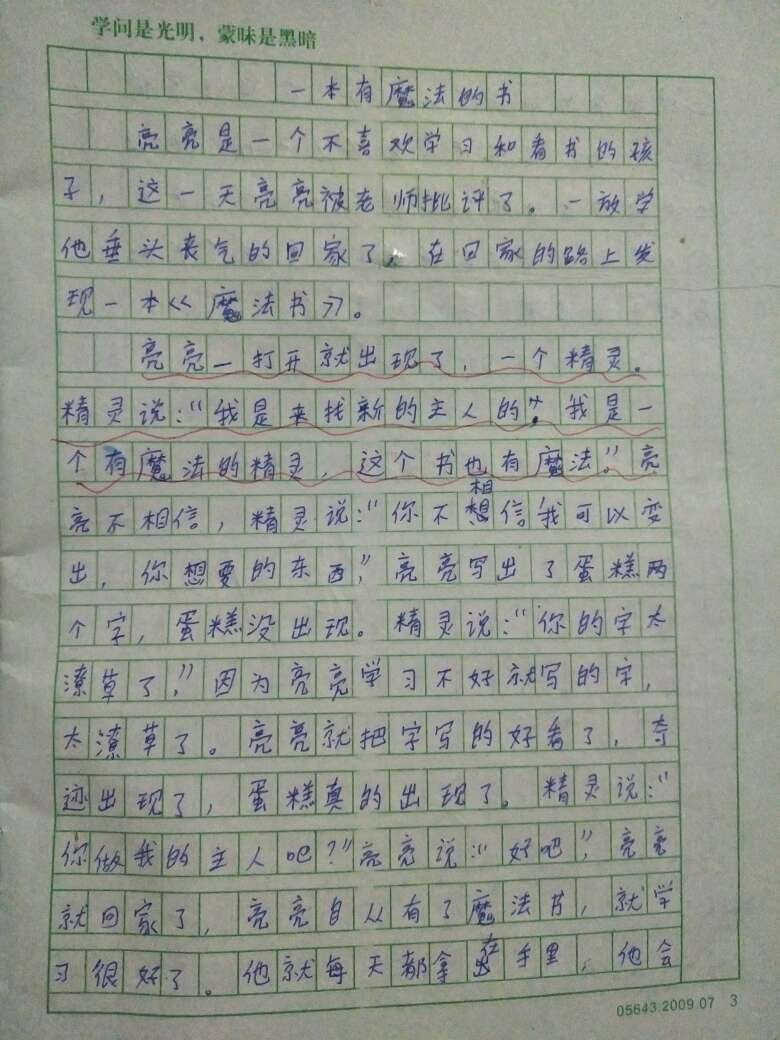 学问是光明，蒙昧是黑暗
一本有魔法的书
亮亮是一个不喜欢学习和看书的孩
子，这一天亮亮被老师批评了。一放学
他垂头丧气的回家了，在回家的路上发
现一本《魔法书》。
亮亮一打开就出现了，一个精灵。
精灵说：“我是来找新的主人的”。我是一
个有魔法的精灵，这个书也有魔法”。亮
相
亮不相信，精灵说：“你不想信我可以变
出，你想要的东西”，亮亮写出了蛋糕两
个字，蛋糕没出现。精灵说：“你的字太
潦草了”！因为亮亮学习不好就写的字，
太潦草了。亮亮就把字写的好看了，奇
迹出现了，蛋糕真的出现了。精灵说：“
你做我的主人吧？”亮亮说：“好吧”，亮亮
就回家了，亮亮自从有了魔法书，就学
习很好了。他就每天都拿在手里，他会
05643.2009.07 3